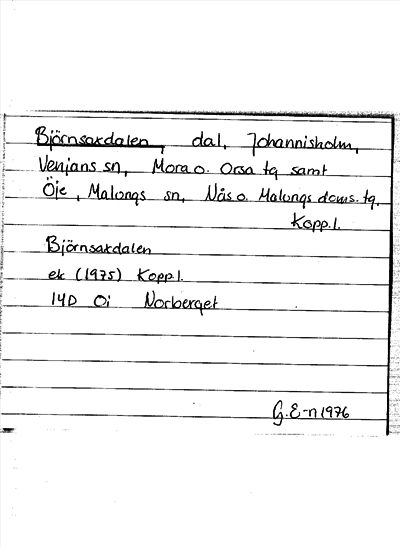 Björnsaxdalen, dal, Johannisholm,
Venjans sn, Mora o. Orsa tg samt
Öje, Malungs sn, Nås o. Malungs doms. tg.
Kopp. l.
Björnsaxdalen
ek (1975) Kopp. l.
14D 0i Norberget
G. E-n 1976